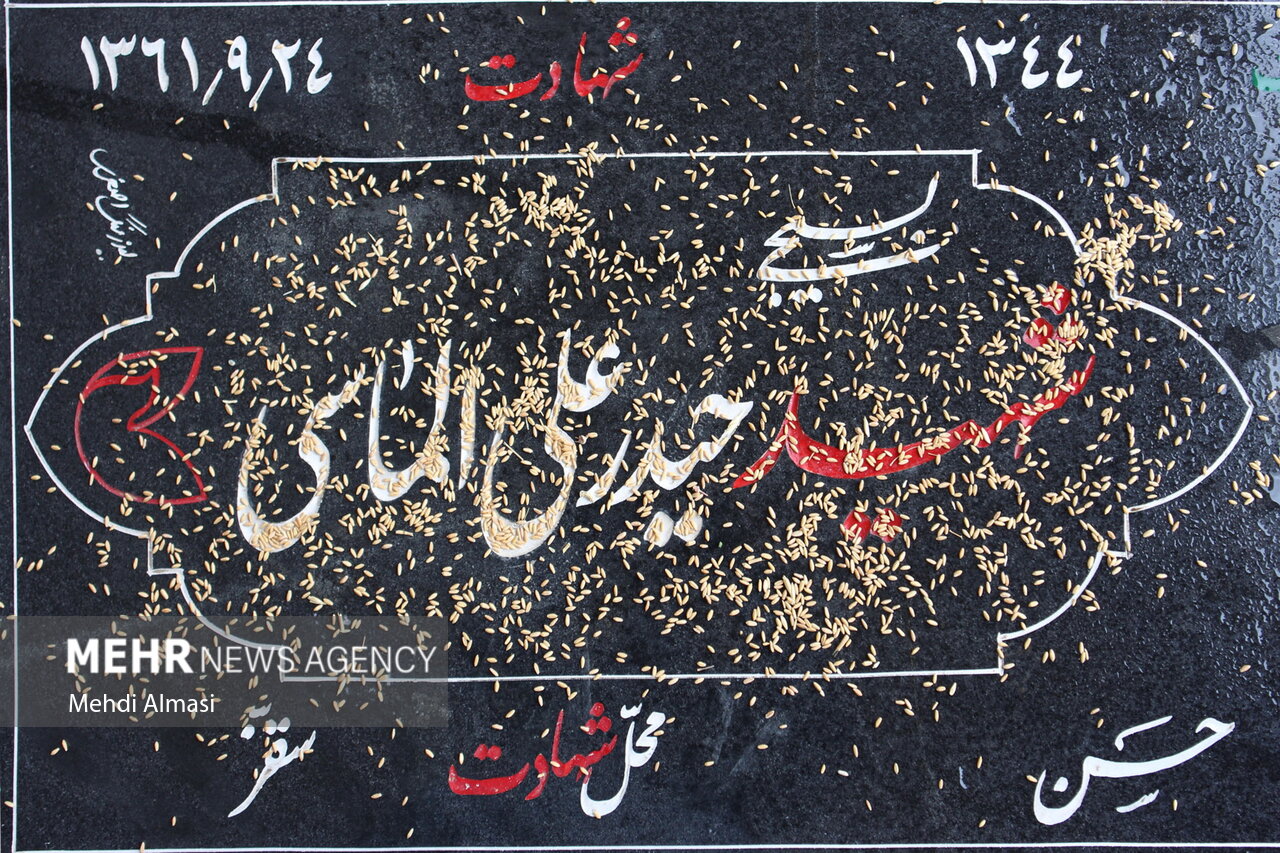 ۱۳۴۴ شهادت ۱۳۶۱/۹/۲۴
بسیجی
شهید حیدر علی الماسی
حسن محل شهادت سقز
MEHR NEWS AGENCY
Mehdi Almasi